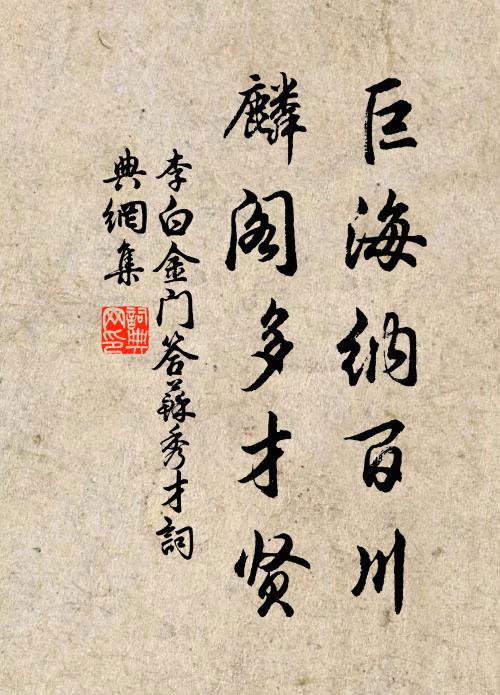 巨海纳百川
麟阁多才贤
李白金门答蘇秀才詞
典網集
詞典
网印